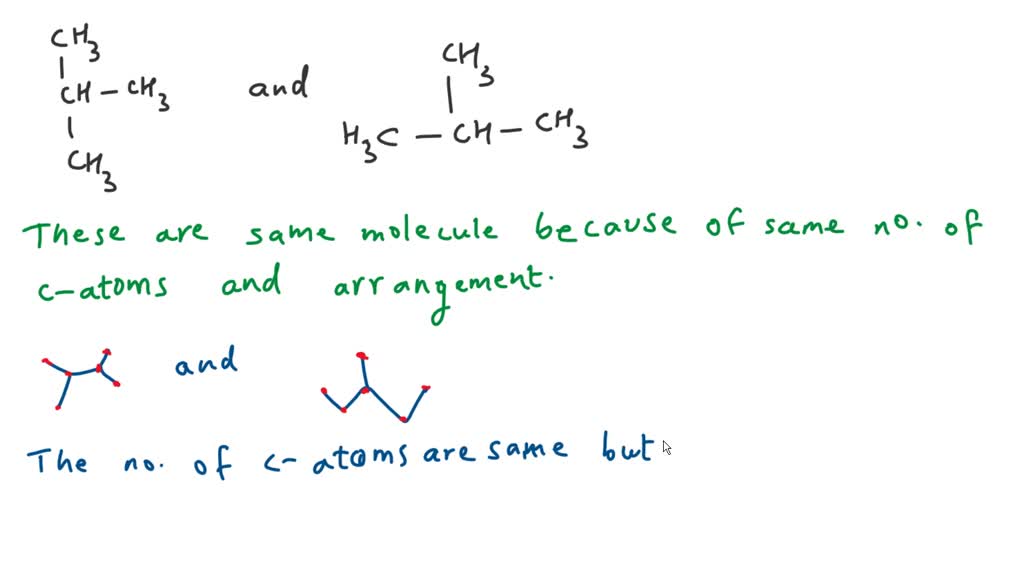 CH3
CH-CH3
CH3
and
CH3
H3C-CH-CH3
These are same molecule because of same no. of
c-atoms and arrangement.
and
The no. of c-atoms are same but